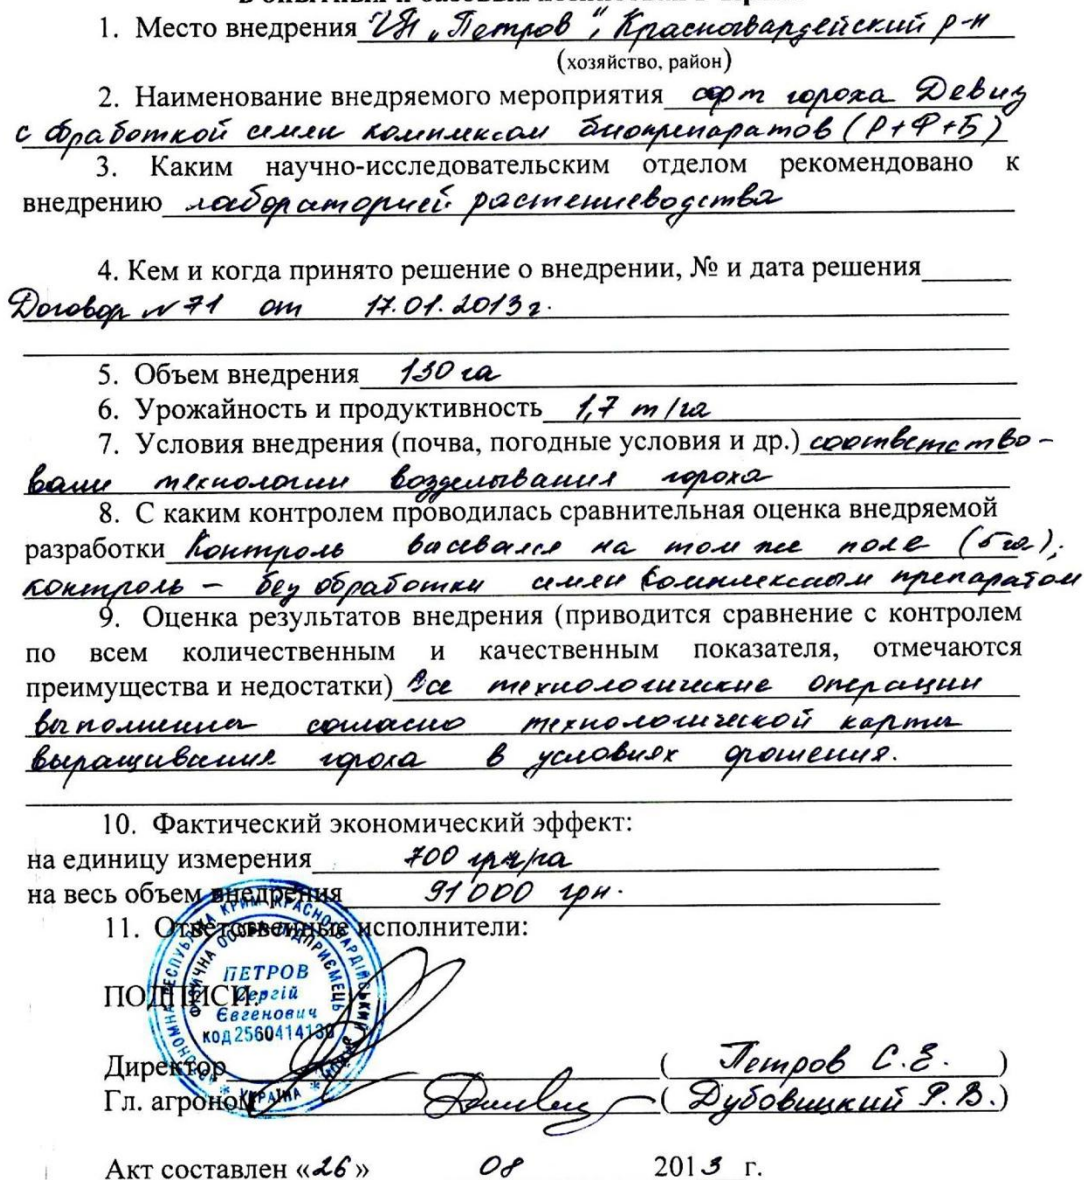 1. Место внедрения ЧП „Петров", Красногвардейский р-н
(хозяйство, район)
2. Наименование внедряемого мероприятия сорт гороха Девиз
с обработкой семян комплексом биопрепаратов (Р+Ф+Б)
3. Каким научно-исследовательским отделом рекомендовано к
внедрению лабораторией растениеводства
4. Кем и когда принято решение о внедрении, № и дата решения
Договор №71 от 17.01.2013г.
5. Объем внедрения 130 га
6. Урожайность и продуктивность 1,7 т/га
7. Условия внедрения (почва, погодные условия и др.) соответство-
вали технологии возделывания гороха
8. С каким контролем проводилась сравнительная оценка внедряемой
разработки Контроль высевался на том же поле (5га);
контроль – без обработки семян комплексным препаратом
9. Оценка результатов внедрения (приводится сравнение с контролем
по всем количественным и качественным показателя, отмечаются
преимущества и недостатки) Все технологические операции
выполнены согласно технологической карты
выращивания гороха в условиях орошения.
10. Фактический экономический эффект:
на единицу измерения 700 грн/га
на весь объем внедрения 91000 грн.
11. Ответственные исполнители:
АВТОНОМНА РЕСПУБЛІКА КРИМ КРАСНОГВАРДІЙСЬКИЙ РАЙОН * УКРАЇНА *
ФІЗИЧНА ОСОБА ПІДПРИЄМЕЦЬ
ПЕТРОВ
Сергій
Євгенович
код 2560414130
ПОДПИСИ:
Директор (Петров С.Е.)
Гл. агроном (Дубовицкий Р.В.)
Акт составлен «26» 08 2013 г.